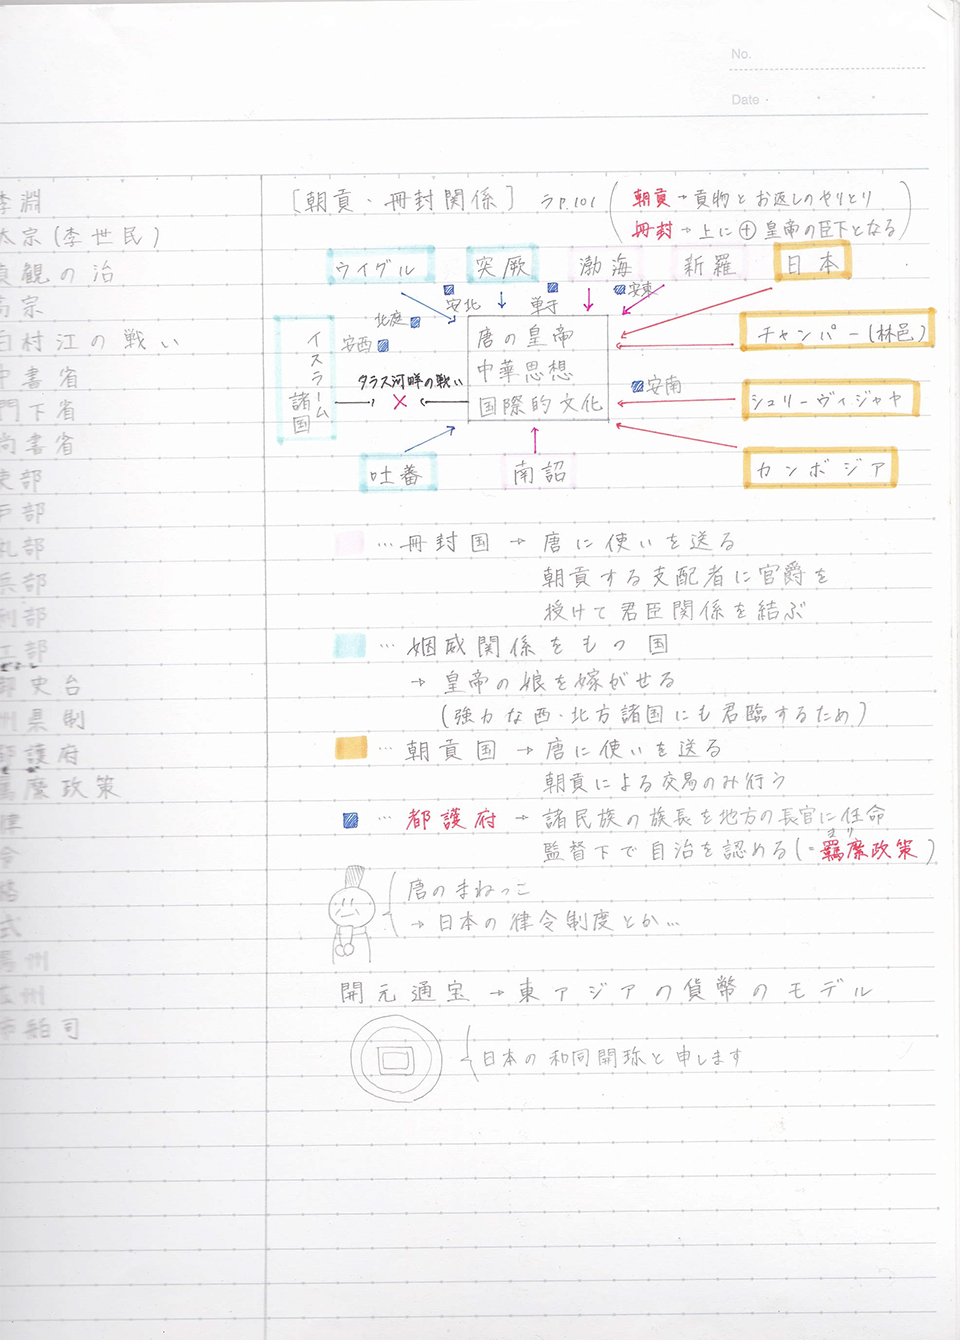 No.
Date
李淵
太宗(李世民)
貞観の治
高宗
白村江の戦い
中書省
門下省
尚書省
吏部
戸部
礼部
兵部
刑部
工部
御史台
州県制
都護府
羈縻政策
律
令
格
式
広州
市舶司
[朝貢・冊封関係] ラP.101
朝貢→貢物とお返しのやりとり
冊封→上に⊕皇帝の臣下となる
ウイグル 突厥 渤海 新羅 日本
安北 単于 安東
北庭
安西
イスラーム諸国
タラス河畔の戦い
唐の皇帝
中華思想
国際的文化
チャンパー(林邑)
安南
シュリーヴィジャヤ
吐蕃 南詔 カンボジア
…冊封国→唐に使いを送る
朝貢する支配者に官爵を
授けて君臣関係を結ぶ
…姻戚関係をもつ国
→皇帝の娘を嫁がせる
(強力な西・北方諸国にも君臨するため)
…朝貢国→唐に使いを送る
朝貢による交易のみ行う
…都護府→諸民族の族長を地方の長官に任命
監督下で自治を認める(=羈縻政策)
唐のまねっこ
→日本の律令制度とか…
開元通宝→東アジアの貨幣のモデル
日本の和同開珎と申します